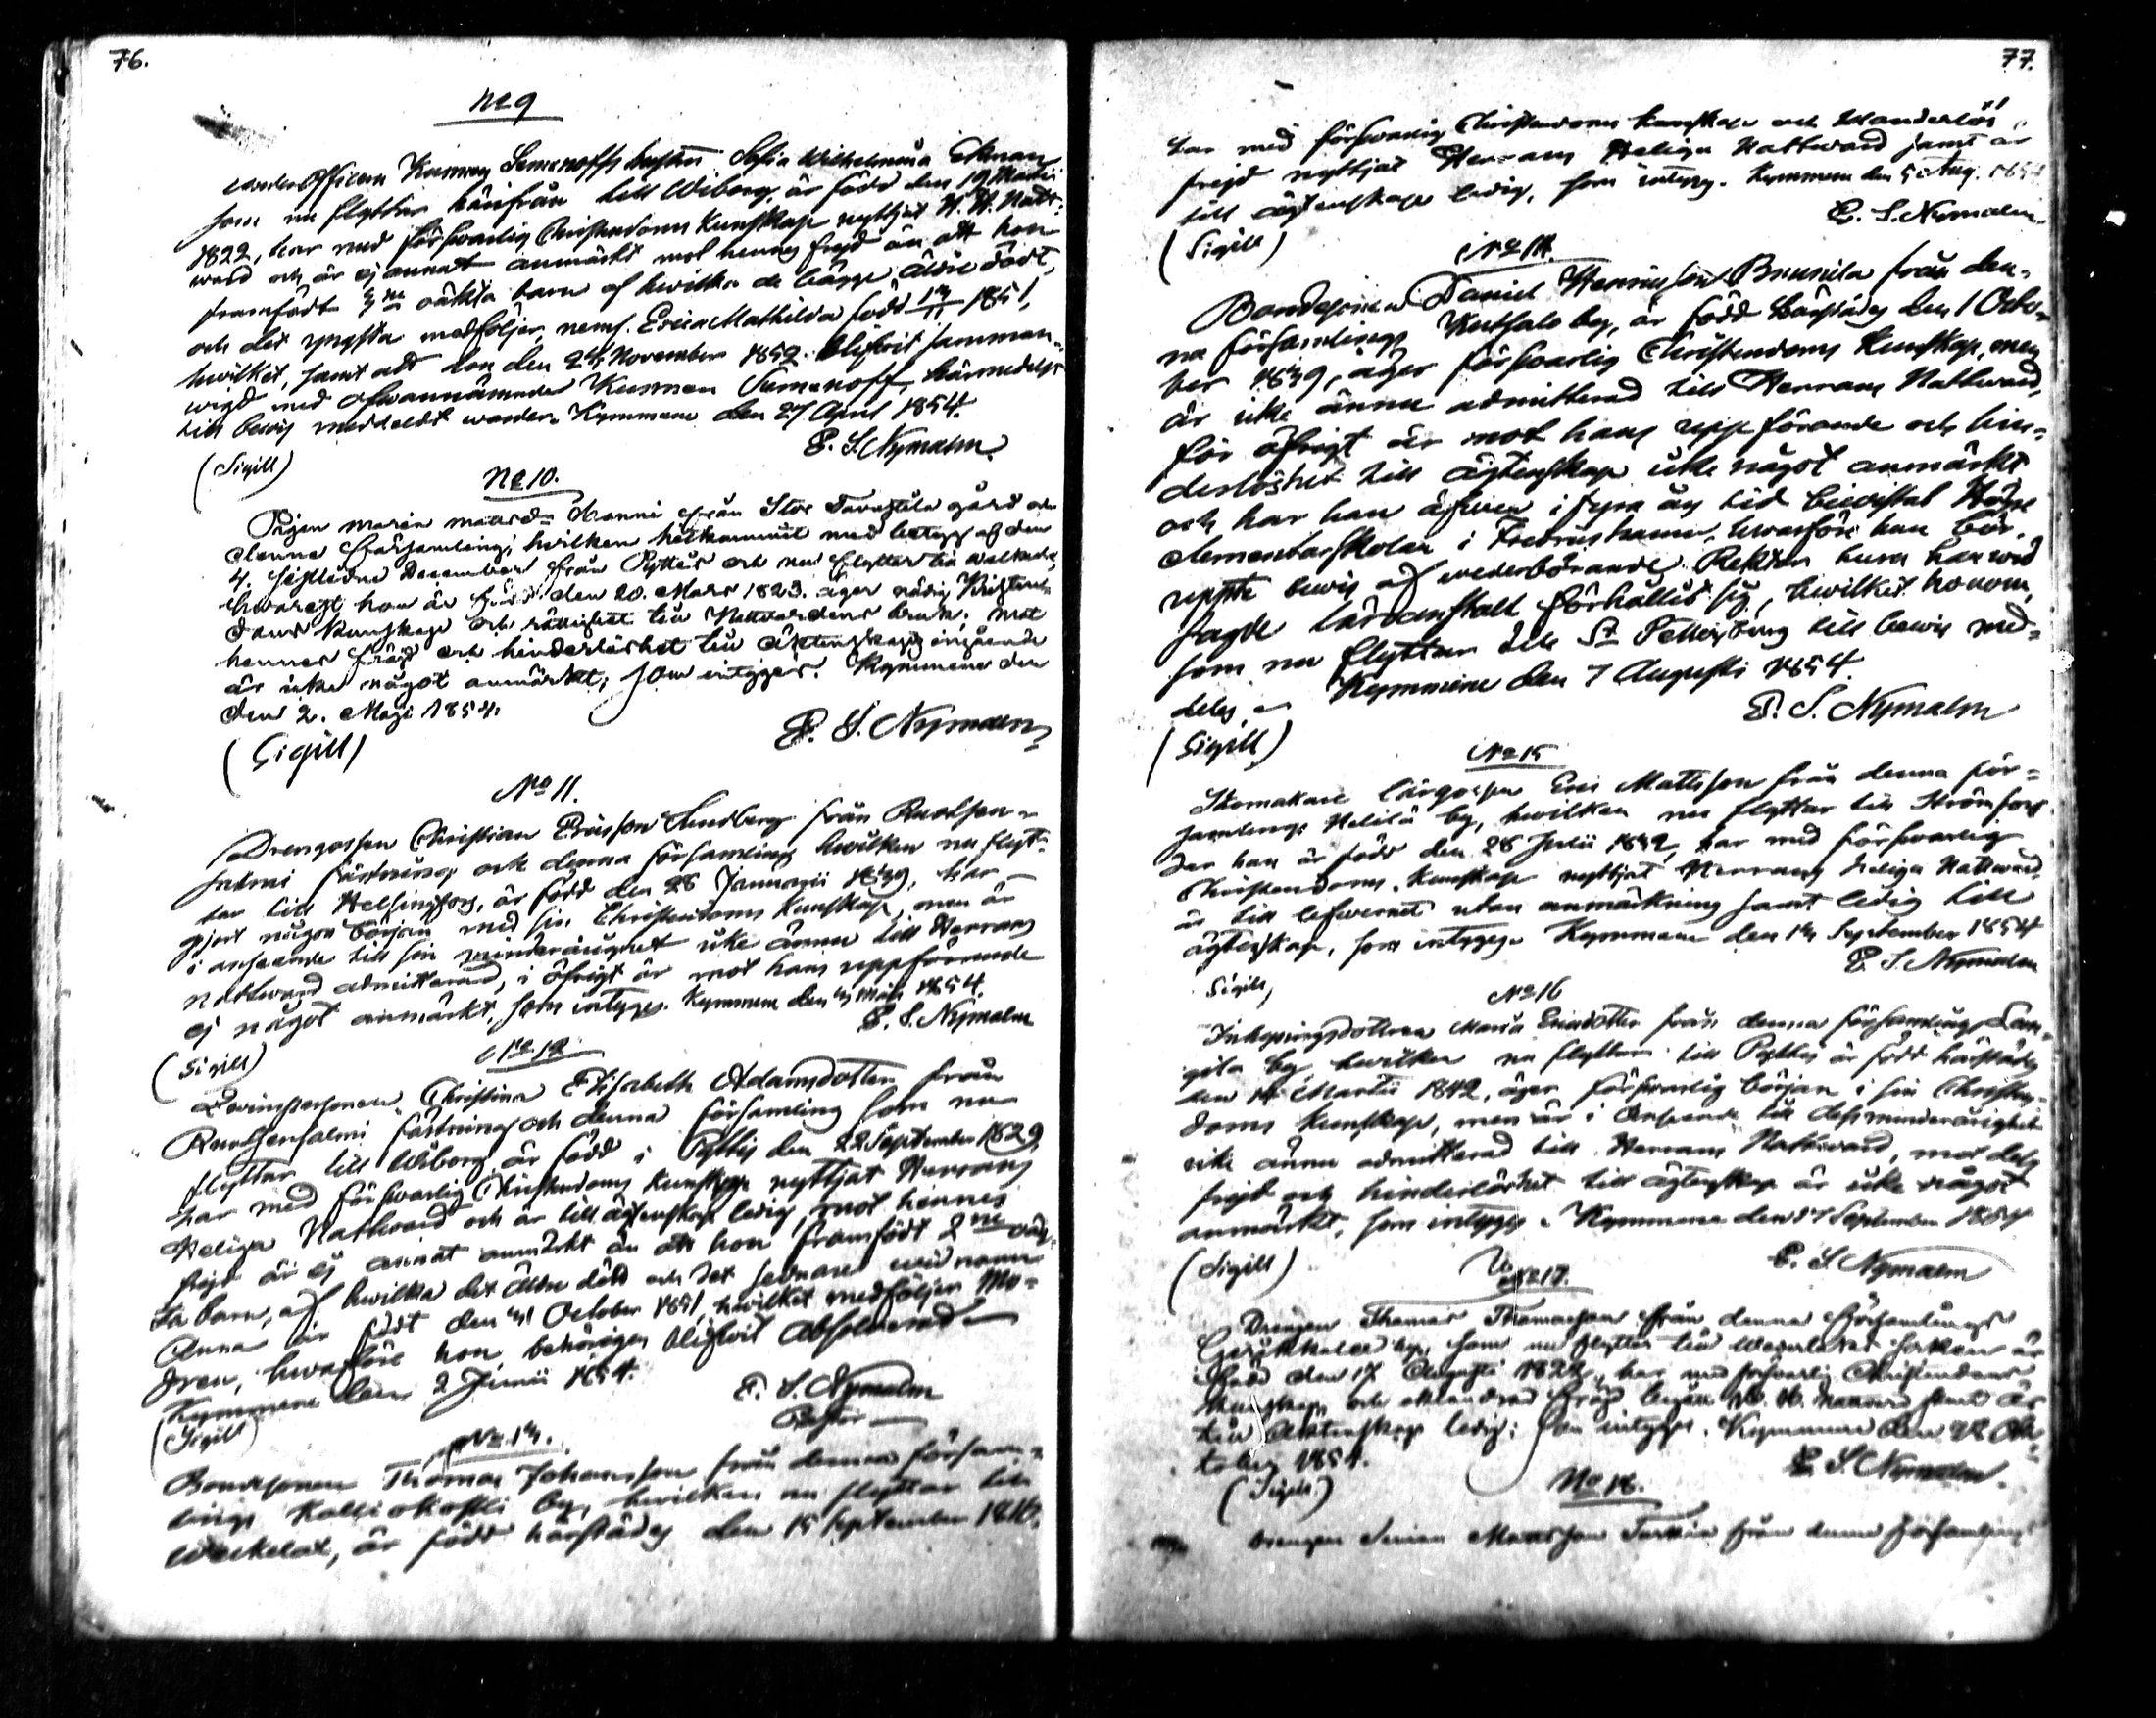 76.
No 9
underOfficern Kusman Semenoffs hustru Sofia Wilhelmina Ekman
som nu flyttar härifrån till Wiborg, är född den 19 Martii
1822, har med försvarlig Christendoms Kunskap nyttjat H. H. Natt-
ward och är ej annat anmärkt mot hennes frejd än att hon
framfödt 3ne oäkta barn af hwilka de bägge äldre dödt,
och det yngsta medföljer, neml. Erica Mathilda född 1851,
hwilket, samt att hon den 24 November 1852 blifwit samman-
wigd med ofwannämnde Kusman Semenoff, härmedelst
till bewis meddeldt warder. Kymmene den 27 April 1854.
E. S. Nymalm
(Sigill)
No 10.
Pigan Maria Matsdr Hanni från Stor gård och
denna Församling, hvilken hitkommit med betyg af den
4. sistledne December från Pyttis och nu flyttar till Walkeala,
hwarest hon är född den 20. Mars 1823. äger nödig Kristen-
doms kunskap och rättighet till Nattvardens bruk; mot
hennes frejd och hinderlöshet till äktenskaps ingående
är icke något anmärkt; som intygas. Kymmene den
den 2. Maji 1854.
E. S. Nymalm
(Sigill)
No 11.
Drengossen Christian Ersson Lindberg från Ruotsen-
salmi fästning och denna församling hwilken nu flyt-
tar till Helsingfors, är född den 28 Januarii 1839, har
gjort någon början med sin Christendoms Kunskap, men är
i anseende till sin minderårighet icke ännu till Herrans
nattward admitterad, i öfrigt är mot hans uppförande
ej något anmärkt, som intygas. Kymmene den Maji 1854.
E. S. Nymalm
(Sigill)
No 12
Christina Elisabeth Adamsdotter från
Ruotsensalmi fästning och denna församling som nu
flyttar till Wiborg är född i Pyttis den 22 September 1829,
har med försvarlig Christendoms Kunskap nyttjat Herrans
Heliga Nattward och är till ägtenskap ledig, mot hennes
frejd är ej annat anmärkt än att hon framfödt 2ne oäg-
ta barn, af hwilka det äldre död och det sednare wid namn
Anna är född den 31 October 1851, hwilket medföljer Mo-
dren, hwarföre hon behörigen blifwit absolverad
Kymmene den 2 Junii 1854.
E. S. Nymalm
Pastor
(Sigill)
No 13.
Bondsonen Thomas Johansson från denna försam-
lings Kalliokoski by, hwilken nu flyttar till
Weckelax, är född härstädes den 15 September 1816,
77.
har med försvarlig Christendoms kunskap och klanderlös
frejd nyttjat Herrans Heliga Nattward samt är
till ägtenskap ledig, som intyg. Kymmene den 5 Aug. 1854
E. S. Nymalm
(Sigill)
No 14.
Bondesonen Daniel Henricsson Brunila från den-
na församlings by, är född härstädes den 1 Octo-
ber 1839, äger försvarlig Christendoms Kunskap, men
är icke ännu admitterad till Herrans Nattward,
för öfrigt är mot hans uppförande och hin-
derlöshet till ägtenskap icke något anmärkt
och har han äfwen i fyra års tid bewistat Högre
elementarskolan i Fredrikshamn, hwarföre han bör
uppte bewis af wederbörande Rektor huru han wid
sagde läroanstalt förhållit sig, hwilket honom,
som nu flyttar till St Petersburg till bewis med-
delas. Kymmene den 7 Augusti 1854.
E. S. Nymalm
(Sigill)
No 15
Skomakare lärgossen Eric Mattsson från denna för-
samlings by, hwilken nu flyttar till Strömfors
der han är född den 28 Julii 1832, har med försvarlig
Christendoms Kunskap nyttjat Herrans heliga Nattward,
är till lefwernet utan anmärkning samt ledig till
ägtenskap, som intygas. Kymmene den September 1854
E. S. Nymalm
Sigill)
No 16
Inhysingsdottren Maria Ericsdotter från denna församling
by, hwilken nu flyttar till Pyttis är född härstädes
den Martii 1842, äger försvarlig början i sin Christen-
doms Kunskap, men är i anseende till dess minderårighet
icke ännu admitterad till Herrans Nattward, mot dess
frejd och hinderlöshet till ägtenskap är icke något
anmärkt, som intygas. Kymmene den 17 September 1854
E. S. Nymalm
(Sigill)
No 17.
Drengen Thomas Thomasson från denna Församlings
by, som nu flyttar till socken är
född den 17 Augusti 1822, har med försvarlig Christendoms
Kunskap och oklandrad frejd begått H. H. Nattvard samt är
till äktenskap ledig; som intygas. Kymmene den 22 Ok-
tober 1854.
E. S. Nymalm.
(Sigill.)
No 18.
Drengen Simon Mattsson från denna församlings